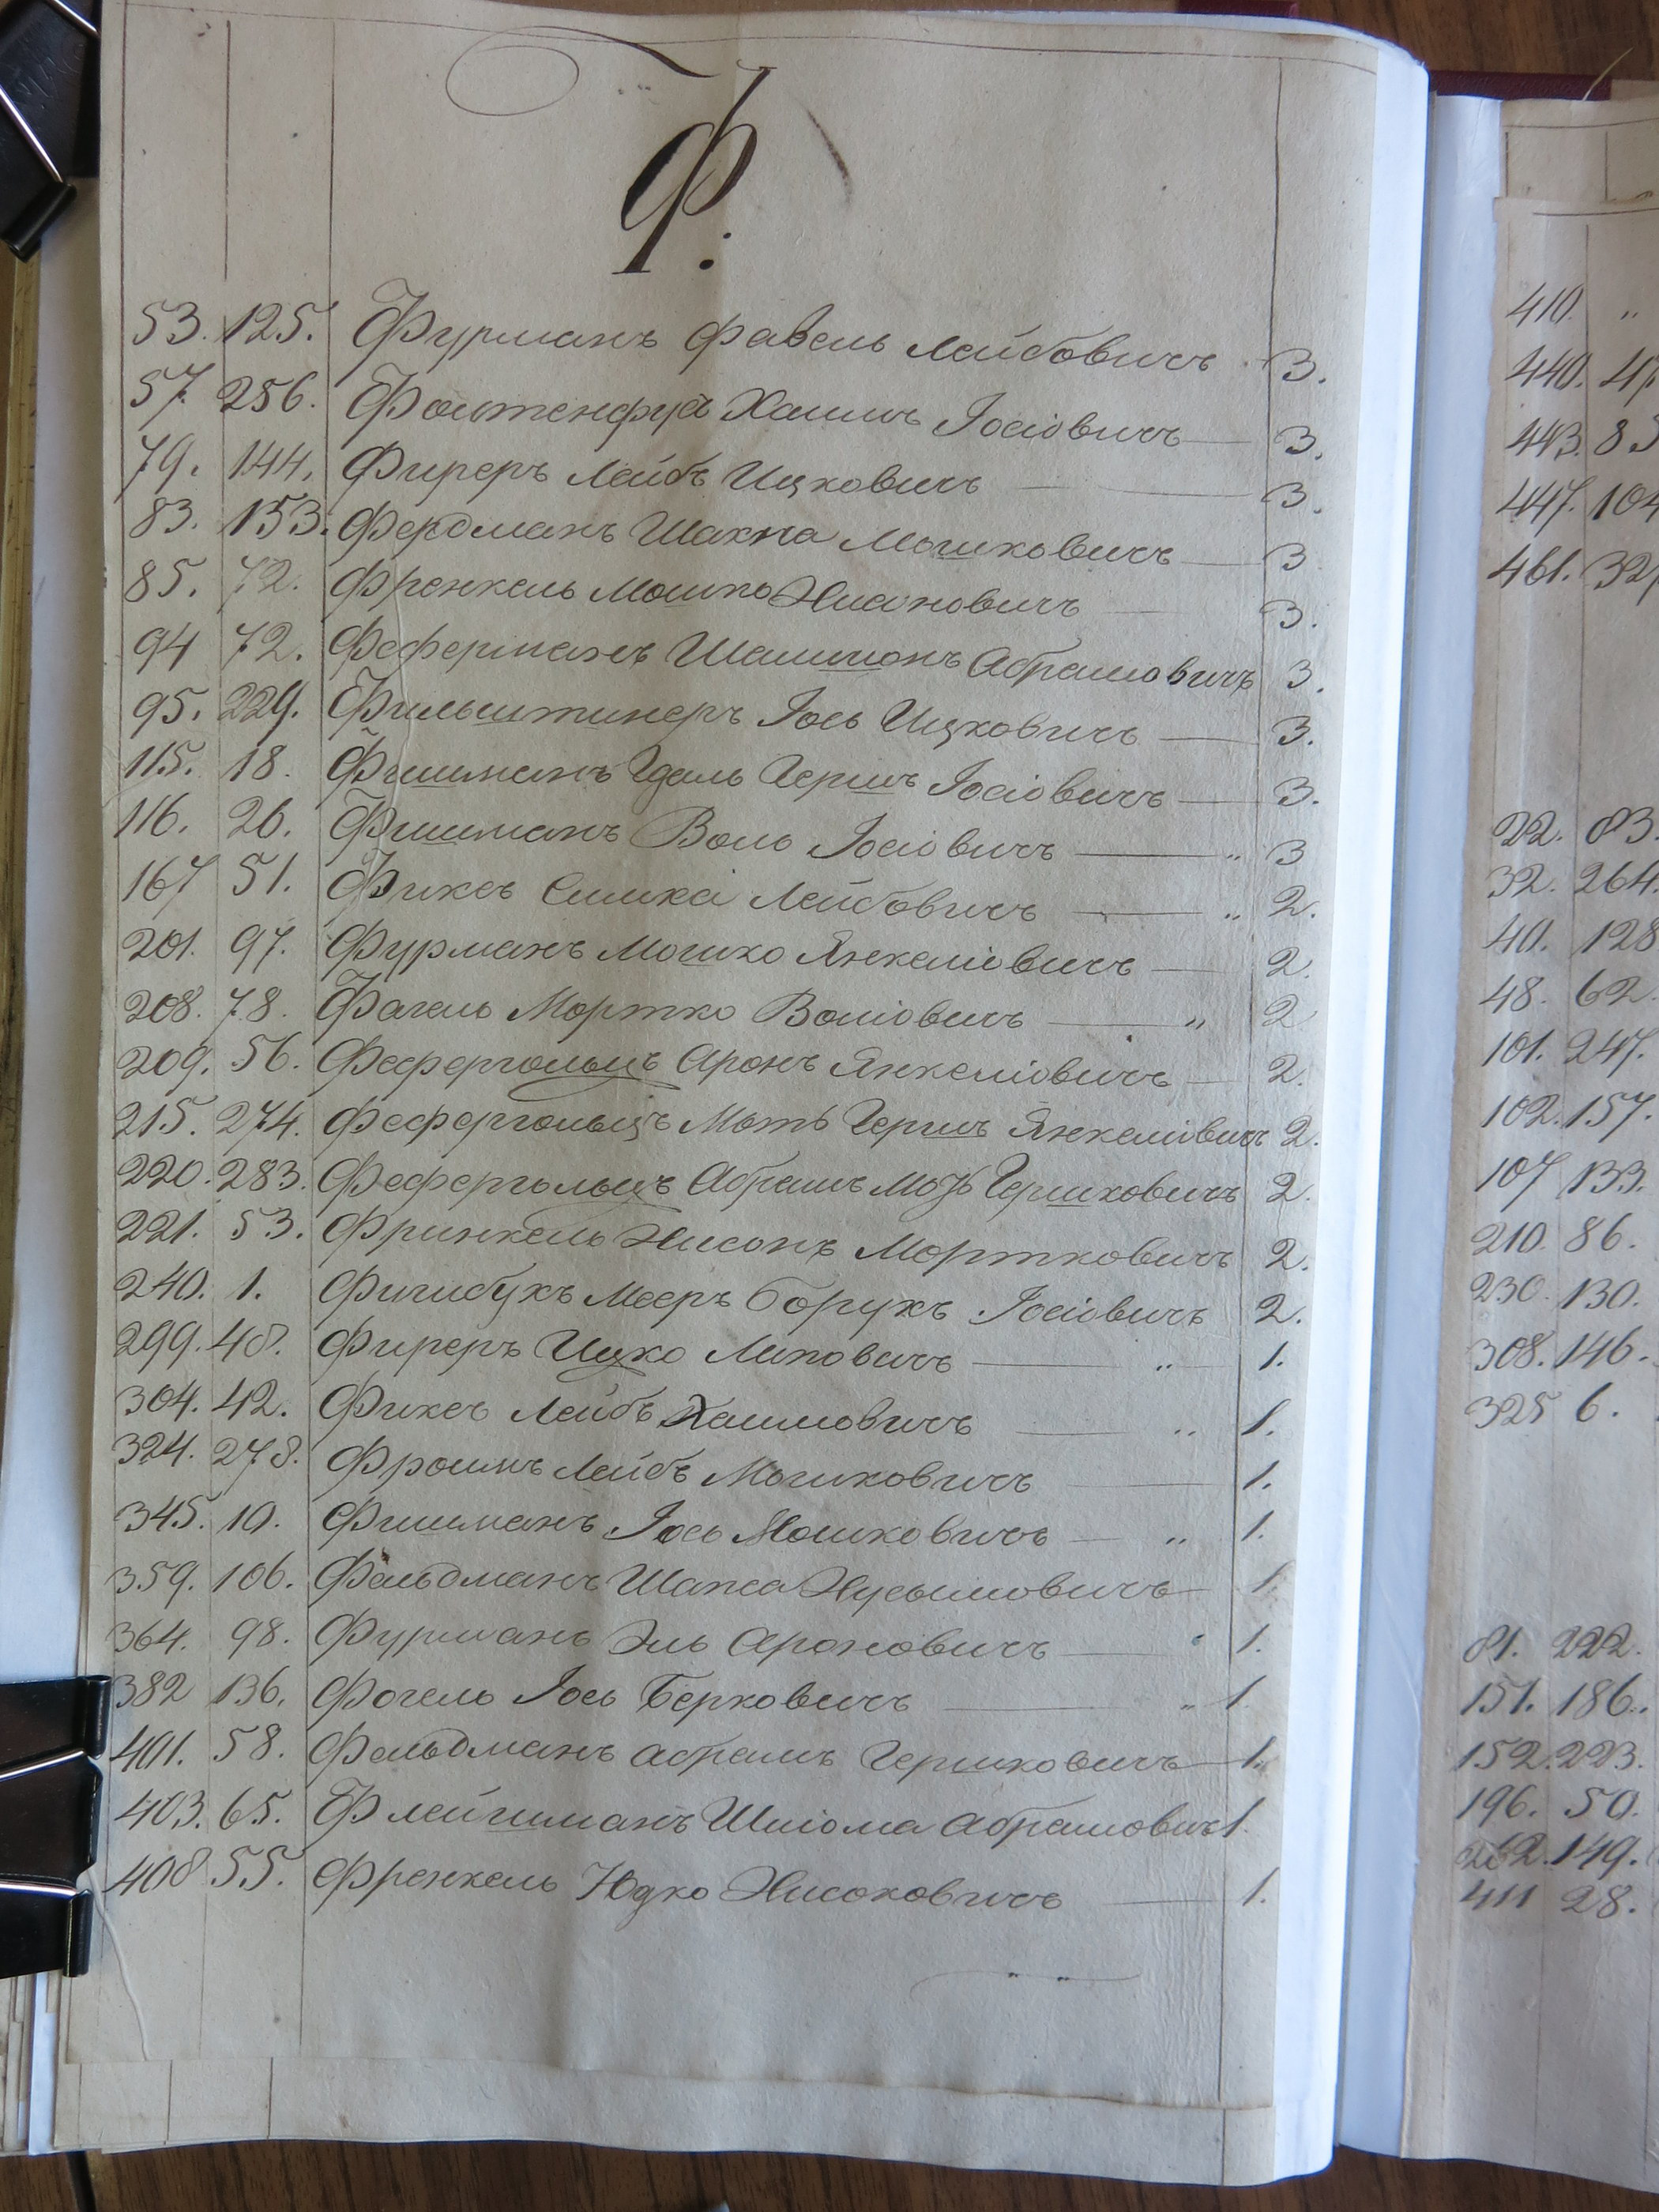 Ф.
53. 125. Фурманъ Фавель Лейбовичъ 3.
57. 256. Хаимъ Іосіовичъ 3.
79. 144. Фиреръ Лейбъ Ицковичъ 3.
83. 153. Фердманъ Шахна Мошковичъ 3
85. 72. Френкель Мошко Нисоновичъ 3.
94 72. Феферманъ Шлиомонъ Абрамовичъ 3.
95. 229. Фильштинеръ Іось Ицковичъ 3.
115. 18. Фишманъ Гдаль Гершъ Іосіовичъ 3.
116. 26. Фишманъ Воль Іосіовичъ „ 3
167 51. Фиксъ Симха Лейбовичъ „ 2.
201. 97. Фурманъ Мошко Янкеліовичъ 2.
208. 78. Фагель Мортко Воліовичъ „ 2
209. 56. Фефергольцъ Аронъ Янкеліовичъ 2.
215. 274. Фефергольцъ Моть Гершъ Янкеліовичъ 2.
220. 283. Фефергольцъ Абрамъ Гершковичъ 2.
221. 53. Фринкель Нисонъ Мортковичъ 2.
240. 1. Фигибухъ Мееръ Борухъ Іосіовичъ 2.
299. 48. Фиреръ Ицко Липовичъ „ 1.
304. 42. Фиксъ Лейбъ Хаимовичъ „ 1.
324. 278. Фроимъ Лейбъ Мошковичъ 1.
345. 10. Фишманъ Іось Мошковичъ „ 1.
359. 106. Фельдманъ Шапса Нусымовичъ 1.
364. 98. Фурманъ Эль Ароновичъ 1.
382 136. Фогель Іось Берковичъ „ 1.
401. 58. Фельдманъ Абрамъ Гершковичъ 1.
403. 65. Флейшманъ Шліома Абрамовичъ 1.
408 55. Френкель Юдко Нисоновичъ 1.
410. „
440.
443.
447. 104
461.
22. 83.
32. 264.
40. 128
48. 62
101. 247.
102. 157.
107 133.
210. 86.
230. 130.
308. 146.
325 6.
81. 222.
151. 186.
152. 223.
196. 50.
262. 149.
411 28.